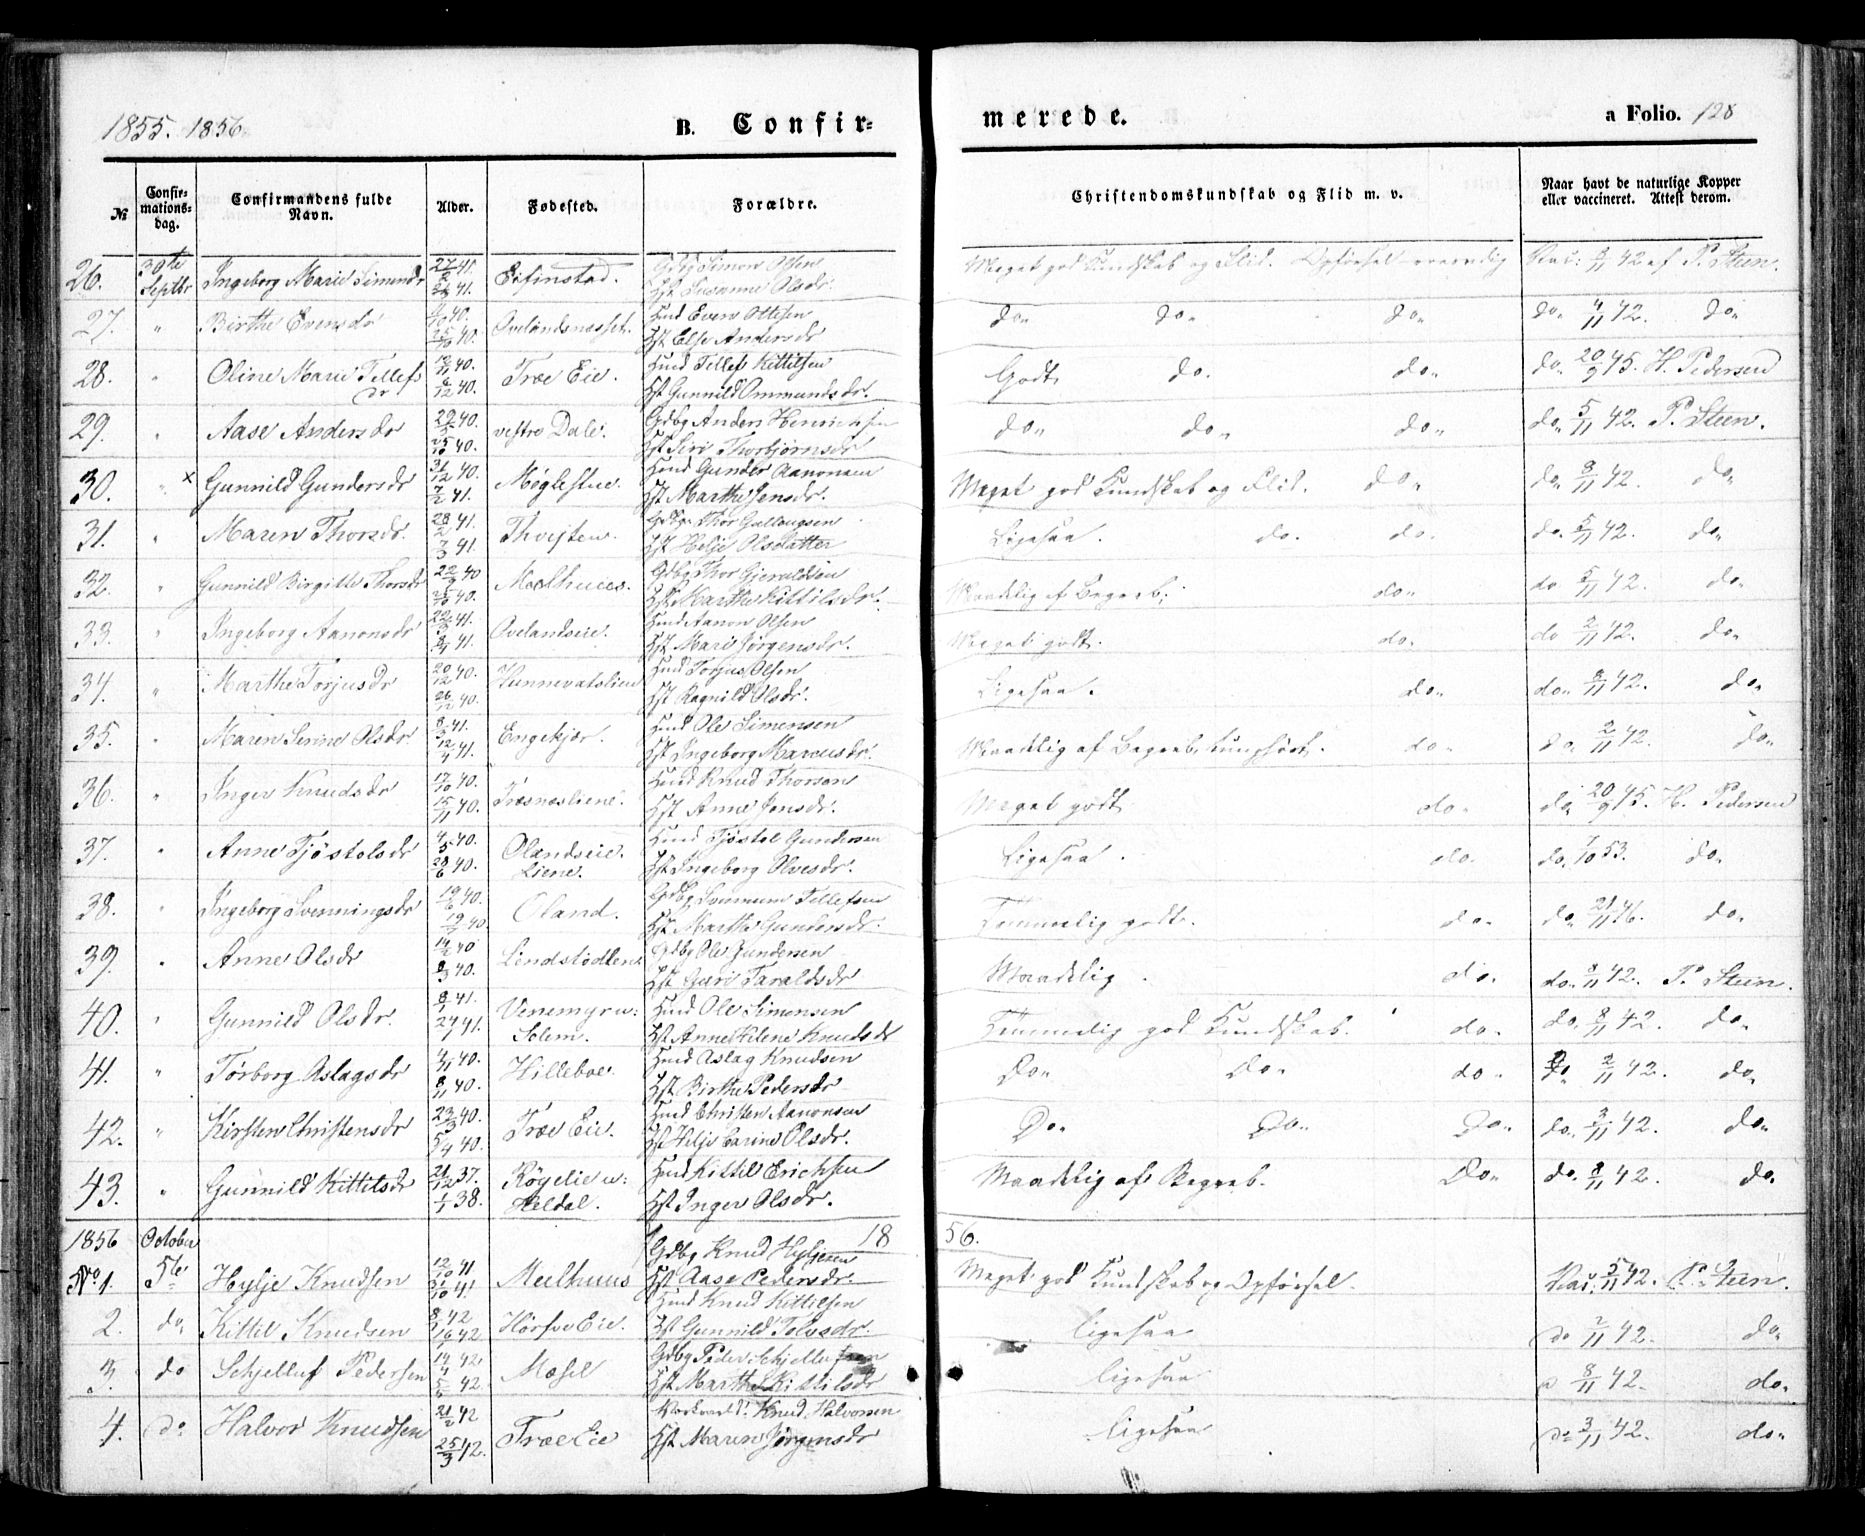 1855. 1856. B. Confir=
merede. a Folio. 128
№ Confir=mations=dag. Confirmandens fulde Navn. Alder. Fødested. Forældre. Christendomskundskab og Flid m. v. Naar havt de naturlige Kopper eller vaccineret. Attest derom.
26. 30te Septbr Ingeborg Marie Simensdr 41. 41. Gdbg Simon Olsen Hst Susanne Olsdr. Meget god Kundskab og Flid. Opførsel 42 af P. Steen.
27. " Birthe Evensdr 40. 40. Hmd Even Ottesen Hst Else Andersdr do" do" do" do" 4/11 42. do"
28. " Oline Marie Tellefsdr 40. 40. Træ Eie. Hmd Tellef Kittilsen Hst Gunnild Ommundsdr. Godt do. do" do" 20/9 45. H. Pedersen
29. " Aase Andersdr 40. 40. vestre Dale. Gdbg Anders Henrichsen Hst Siri Thorbjørnsdr do" do" do" do" 5/11 42. P. Steen.
30. " x Gunnild Gundersdr 31/12 40. 7/2 41. Møglestue. Hmd Gunder Aanonsen Hst Marthe Jensdr. Meget god Kundskab og Flid. do" do" 8/11 42. do"
31. " Maren Thorsdr. 28/2 41. 7/3 41. Thvejten. Thor Gullaugsen Hst Helje Olsdatter Ligesaa. do. do. do. 5/11 42. do"
32. " Gunnild Birgitte Thorsdr 40 40. Mælhuus. Gdbg Thor Gjeruldsen Hst Marthe Kittilsdr. Maadelig af Begreb. do" do 5/11 42. do"
33. " Ingeborg Aanonsdr 41. 41. Ovelandseie. Hmd Aanon Olsen Hst Mari Jørgensdr. Meget godt. do" do 2/11 42. do"
34. " Marthe Torjusdr 20/12 40. 26/12 40. Hunnevatslien Hmd Torjus Olsen Hst Ragnild Olsdr. Ligesaa. do" do" 8/11 42. do"
35. " Maren Serine Olsdr. 8/3 41. 12/4 41. Engekjær. Hmd Ole Simensen Hst Ingeborg Marcusdr. Maadelig af Begreb, do" do" 2/11 42. do"
36. " Inger Knudsdr 17/10 40. 15/11 40. Træsnæsliene. Hmd Knud Thorsen Hst Anne Jensdr. Meget godt do" do" 20/9 45. H. Pedersen
37. " Anne Tjøstolsdr 4/5 40. 28/6 40. Olandseie. Liene. Hmd Tjøstol Gundersen Hst Ingeborg Olvesdr. Ligesaa. do. do. /10 53. do"
38. " Ingeborg Svenningsdr 40. 40. Oland. Gdbg Tellefsen Hst Marthe Gundersdr. Temmelig godt. do" do" 21/11 46. do"
39. " Anne Olsdr 14/2 40 8/3 40. Lindstødtlen Gdbg Ole Gundersen Hst Guri Taraldsdr Maadelig. do. do" 8/11 42. P. Steen.
40. " Gunnild Olsdr. 41. 41. Venemyr u: Solem. Hmd Ole Simensen Hst Anne Helene Knudsdr Temmelig god Kundskab. do. do. 8/11 42. do"
41. " Tørborg Aslagsdr 40. 8/11 40. Hilleboe. Hmd Aslag Knudsen Hst Birthe Pedersdr Do" Do" do" do" 2/11 42. do"
42. " Kirsten Christensdr 23/3 40. 5/4 40. Træ Eie. Hmd Christen Aanonsen Hst Helje Carine Olsdr. Do" Do" Do" do. 3/11 42. do"
43. " Gunnild Kittilsdr 21/12 37. 1/1 38. Røyelie u: Heldal. Hmd Kittel Erichsen Hst Inger Olsdr. Maadelig af Begreb. Do" do. 8/11 42. do.
1856 October 18 56.
No 1. 5te Hylje Knudsen 12/10 41 31/10 41 Mælhuus Gdbg Knud Hyljesen Hst Aase Pedersdr. Meget god Kundskab og Opførsel. Vac: 5/11 42. P. Steen.
2. do. Kittel Knudsen 42 42 Hørsve Eie. Hmd Knud Kittilsen Hst Gunnild Tolvsdr. ligesaa do 2/11 42. do"
3. do Schjelluf Pedersen 42. 42. Mæsel Gdbg Peder Schjellufsen Hst Marthe Kittilsdr ligesaa 8/11 42. do"
4. do Halvor Knudsen 21/2 42 25/3 42. Træe Eie Knud Halvorsen Hst Maren Jørgensdr ligesaa do 3/11 42. do"